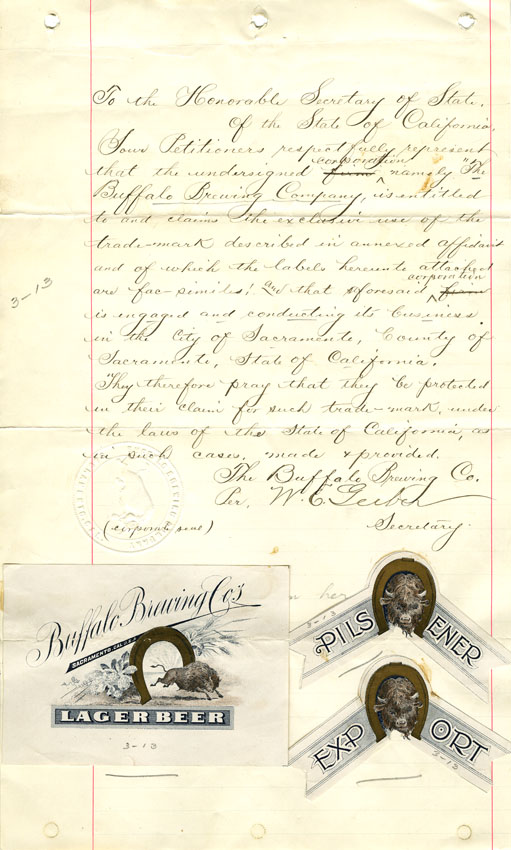 To the Honorable Secretary of State,
Of the State of California.
Your Petitioners respectfully represent
corporation
that the undersigned firm namely "The
Buffalo Brewing Company, is entitled
to and claims the exclusive use of the
trade-mark described in annexed affidavit
and of which the labels hereunto attached
corporation
are fac-similes; and that aforesaid firm
is engaged and conducting its business
in the City of Sacramento, County of
Sacramento, State of California.
They therefore pray that they be protected
in their claim for such trade-mark, under
the laws of the State of California, as
in such cases, made & provided.
The Buffalo Brewing Co.
Per, W. E. Gerber
Secretary.
(corporate seal)
3-13
Buffalo Brewing Co's
SACRAMENTO CAL. U.S.A.
LAGER BEER
3-13
her
3-13
PILSENER
EXPORT
3-13